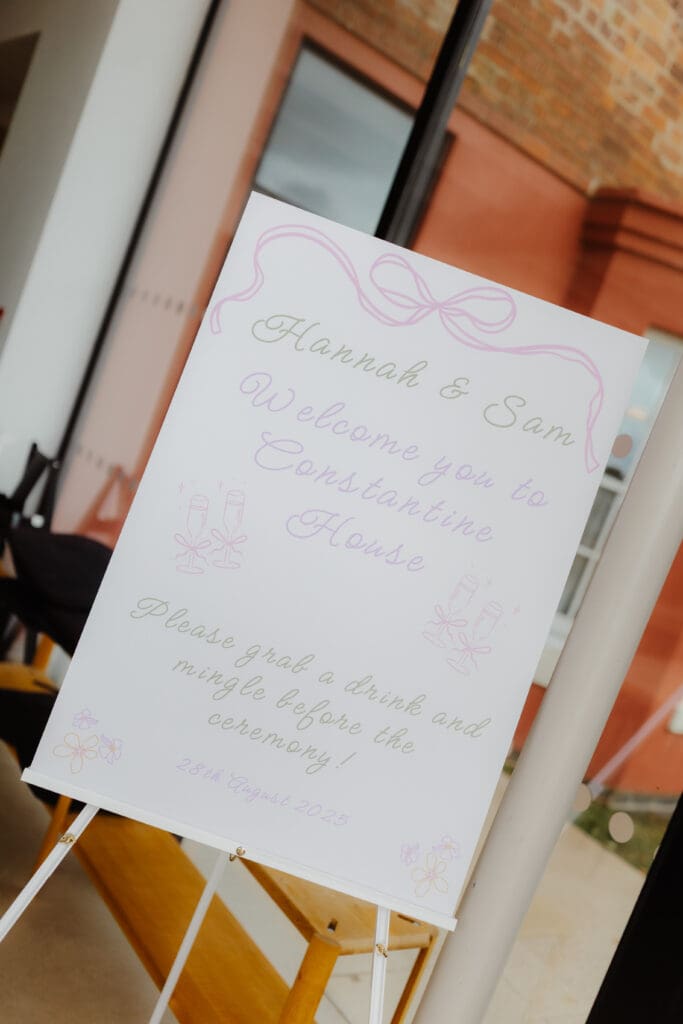 Hannah & Sam
Welcome you to
Constantine
House
Please grab a drink and
mingle before the
ceremony!
28th August 2025